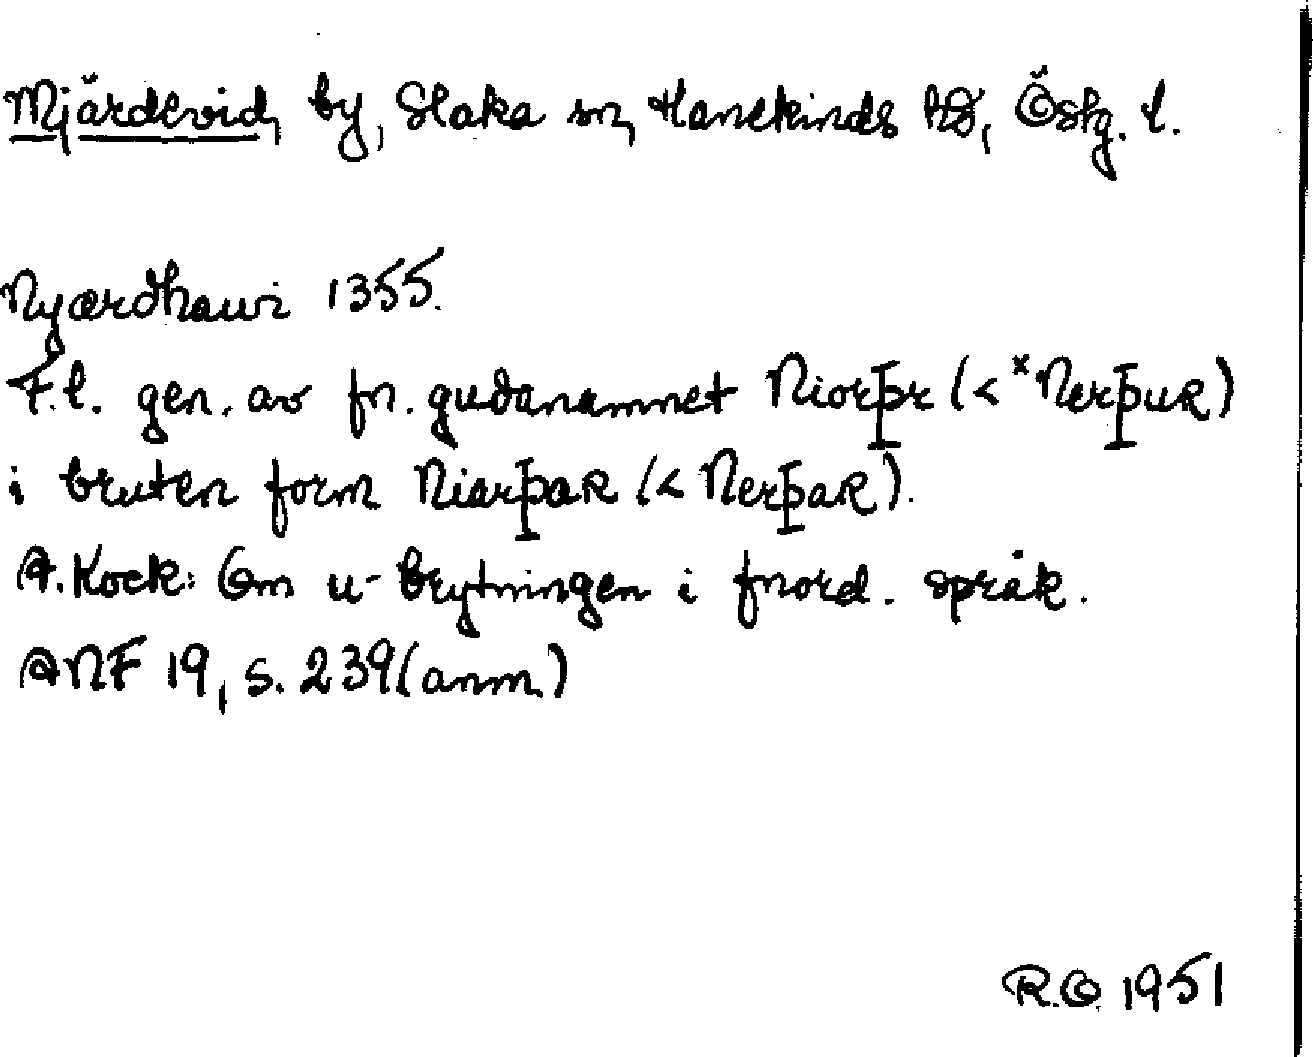 Mjärdevid, by, Slaka sn, Hanekinds hd, Östg. l.
Nyærdhawi 1355.
F.l. gen. av fn. gudanamnet Niorþr (< *NerþuR)
i bruten form NiarþaR (< NerþaR).
A. Kock: Om u-brytningen i fnord. språk.
ANF 19, s. 239 (anm.)
R.O. 1951